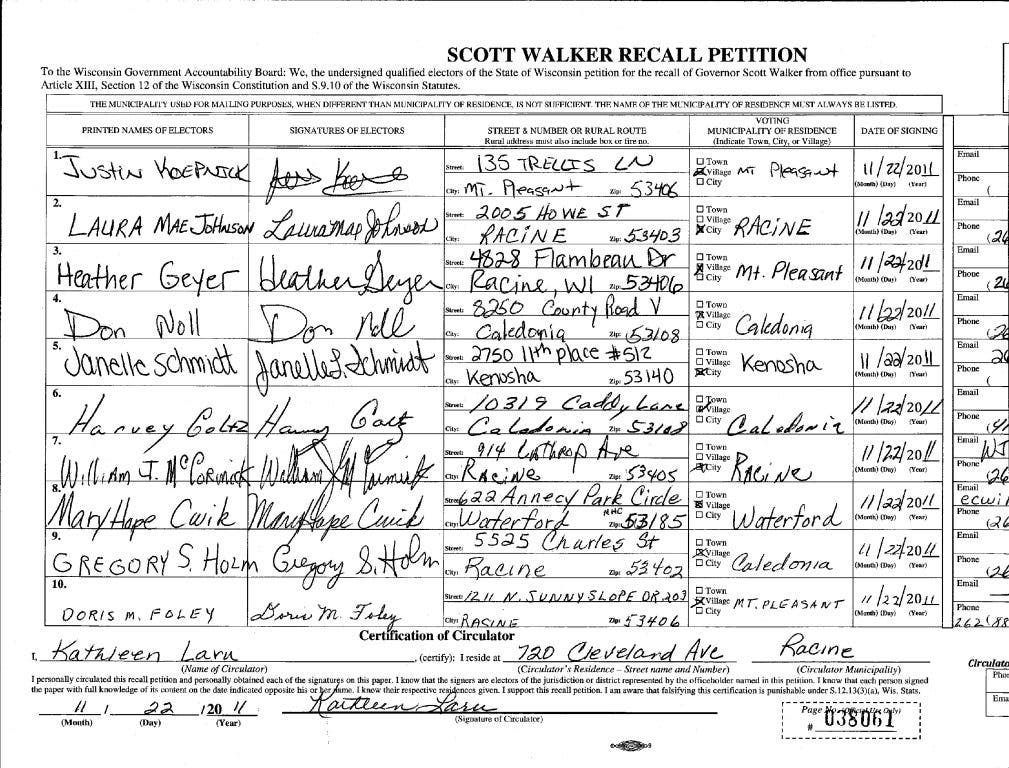 SCOTT WALKER RECALL PETITION
To the Wisconsin Government Accountability Board: We, the undersigned qualified electors of the State of Wisconsin petition for the recall of Governor Scott Walker from office pursuant to
Article XIII, Section 12 of the Wisconsin Constitution and S.9.10 of the Wisconsin Statutes.
THE MUNICIPALITY USED FOR MAILING PURPOSES, WHEN DIFFERENT THAN MUNICIPALITY OF RESIDENCE, IS NOT SUFFICIENT. THE NAME OF THE MUNICIPALITY OF RESIDENCE MUST ALWAYS BE LISTED.
PRINTED NAMES OF ELECTORS SIGNATURES OF ELECTORS STREET & NUMBER OR RURAL ROUTE Rural address must also include box or fire no. VOTING MUNICIPALITY OF RESIDENCE (Indicate Town, City, or Village) DATE OF SIGNING
1. JUSTIN KOEPNICK Street: 135 TRELLIS LN Town Village City Mt Pleasant 11/22/2011 (Month) (Day) (Year) Email
City: Mt. Pleasant Zip: 53406 Phone (
2. LAURA MAE JOHNSON Laura Mae Johnson Street: 2005 HOWE ST Town Village City RACINE 11/22/2011 (Month) (Day) (Year) Email
City: RACINE Zip: 53403 Phone (26
3. Heather Geyer Heather Geyer Street: 4828 Flambeau Dr Town Village City Mt. Pleasant 11/22/2011 (Month) (Day) (Year) Email
City: Racine, WI Zip: 53406 Phone (26
4. Don Noll Don Noll Street: 8250 County Road V Town Village City Caledonia 11/22/2011 (Month) (Day) (Year) Email
City: Caledonia Zip: 53108 Phone (26
5. Janelle Schmidt Janelle L. Schmidt Street: 2750 11th place #512 Town Village City Kenosha 11/22/2011 (Month) (Day) (Year) Email
City: Kenosha Zip: 53140 Phone (
6. Harvey Goltz Street: 10319 Caddy Lane Town Village City Caledonia 11/22/2011 (Month) (Day) (Year) Email
City: Caledonia Zip: 53108 Phone (41
7. William J. McCormick William J McCormick Street: 914 Lathrop Ave Town Village City RACINE 11/22/2011 (Month) (Day) (Year) Email
City: RACINE Zip: 53405 Phone (26
8. Mary Hope Cwik Mary Hope Cwik Street: 622 Annecy Park Circle Town Village City Waterford 11/22/2011 (Month) (Day) (Year) Email ecwil
City: Waterford MHC Zip: 53185 Phone (26
9. GREGORY S. HOLM Gregory S. Holm Street: 5525 Charles St Town Village City Caledonia 11/22/2011 (Month) (Day) (Year) Email
City: Racine Zip: 53402 Phone (26
10. DORIS M. FOLEY Doris M. Foley Street: 1211 N. SUNNYSLOPE DR 203 Town Village City MT. PLEASANT 11/22/2011 (Month) (Day) (Year) Email
City: RACINE Zip: 53406 Phone 262 (88
Certification of Circulator
I, Kathleen Laru, (certify): I reside at 720 Cleveland Ave Racine
(Name of Circulator) (Circulator's Residence – Street name and Number) (Circulator Municipality) Circulato
I personally circulated this recall petition and personally obtained each of the signatures on this paper. I know that the signers are electors of the jurisdiction or district represented by the officeholder named in this petition. I know that each person signed
the paper with full knowledge of its content on the date indicated opposite his or her name. I know their respective residences given. I support this recall petition. I am aware that falsifying this certification is punishable under S.12.13(3)(a), Wis. Stats.
11 / 22 /2011 Kathleen Laru
(Month) (Day) (Year) (Signature of Circulator)
Page No. (Official Use Only)
# 038061
Phon
Ema